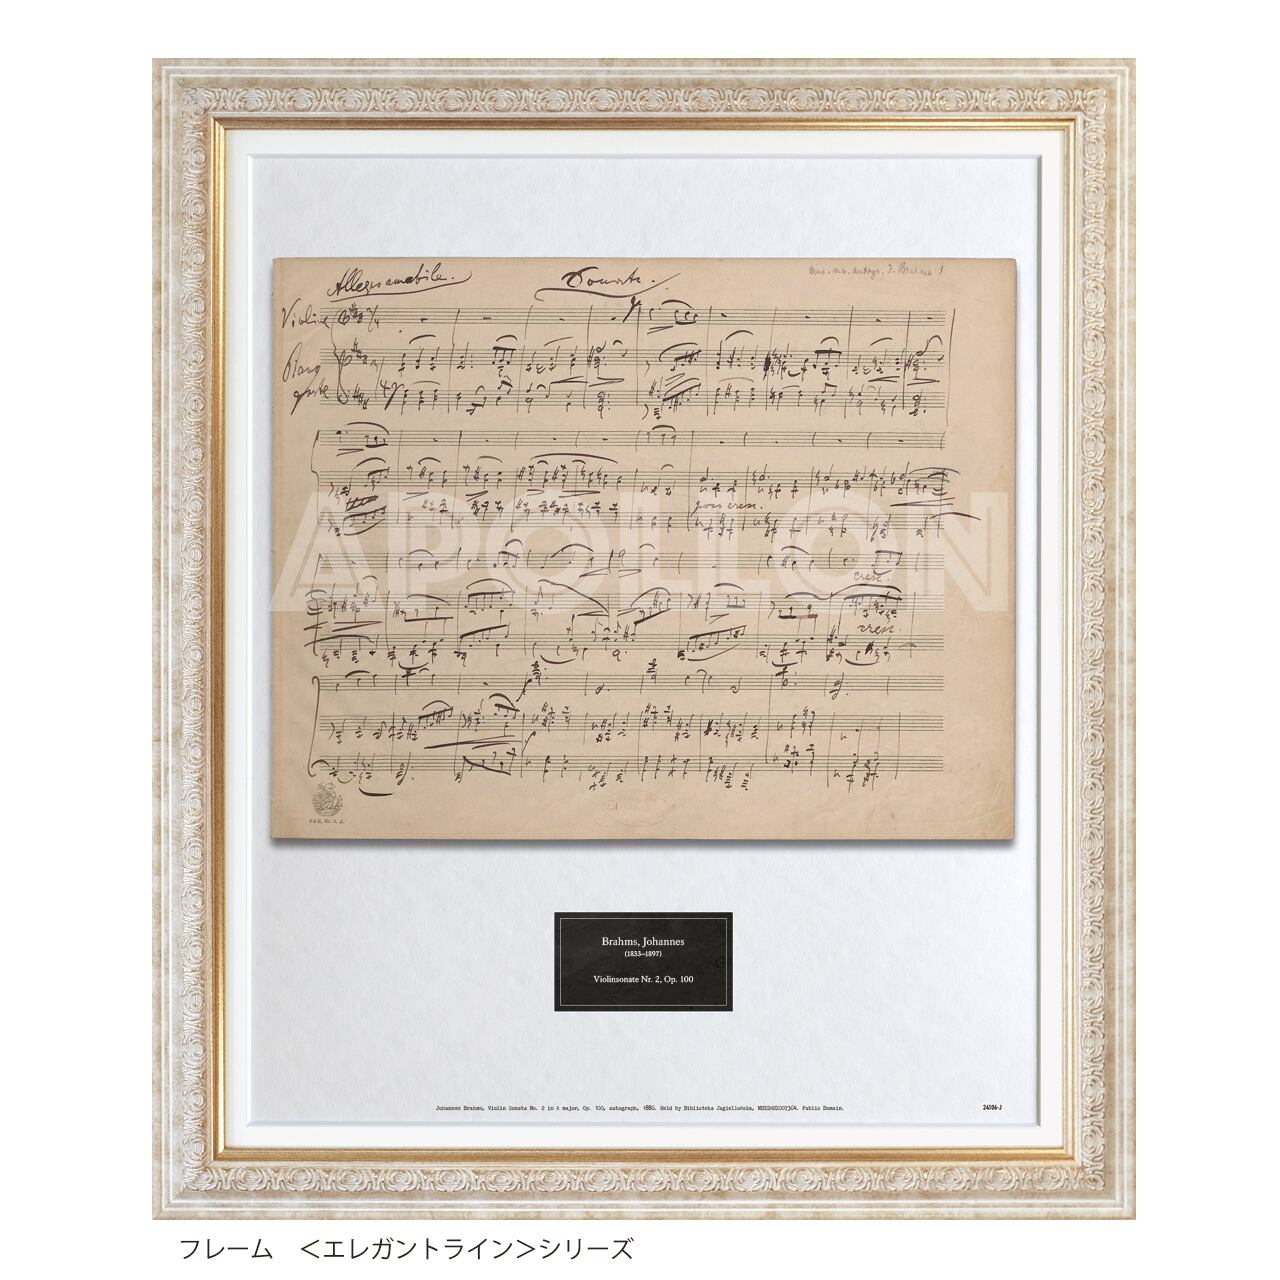 Allegro amabile.
Sonate.
Mus. ms. autogr. J. Brahms 1
Violine
Piano
forte
poco cresc.
APOLLON
cresc.
cresc.
Brahms, Johannes
(1833–1897)
Violinsonate Nr. 2, Op. 100
Johannes Brahms, Violin Sonata No. 2 in A major, Op. 100, autograph, 1886. Held by Biblioteka Jagiellońska, NDIGMUZ007364. Public Domain.
24106-J
フレーム　＜エレガントライン＞シリーズ